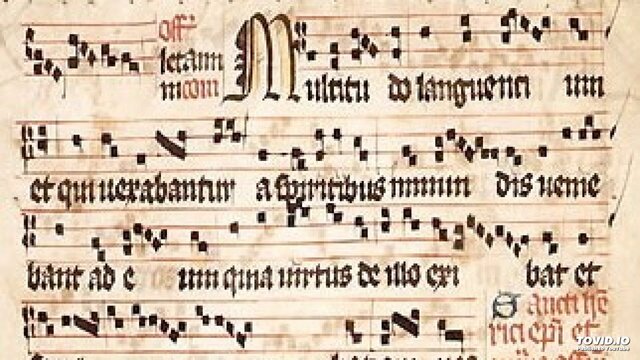 off
Multitu do languenti um
et qui uexabantur a spiritibus inmun dis uenie
bant ad e um quia uirtus de illo exi bat et
Sancti he
rici epi et
TOVID.IO